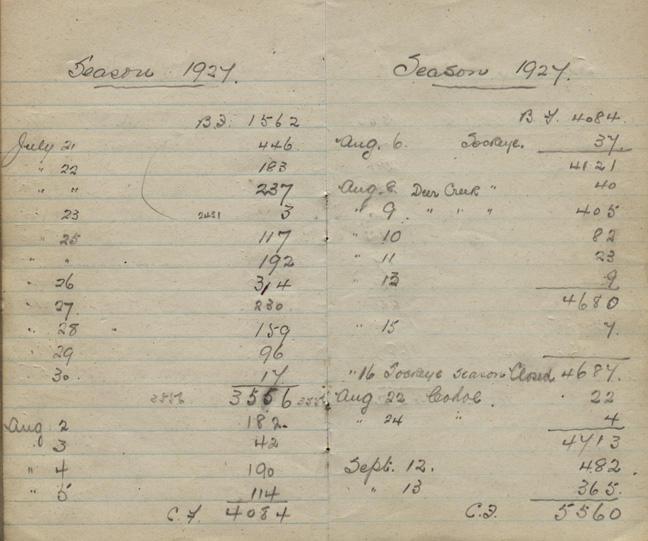 Season 1927.
B.F. 1562
July 21 446
" 22 183
" " 237
" 23 2431 3
" 25 117
" " 192
" 26 314
" 27 230
" 28 " 159
" 29 96
" 30 17
3556 3556
Aug 2 182
" 3 42
" 4 190
" 5 114
C.F. 4084
Season 1927.
B.F. 4084.
Aug. 6. Sockeye. 37.
4121
Aug. 8. Deer Creek " 40
" 9 " " " 405
" 10 82
" 11 23
" 13 9
4680
" 15 7.
" 16 Sockeye season Closed 4687.
Aug 22 Cohoe. 22
" 24 " 4
4713
Sept. 12. 482.
" 13 365.
C.F. 5560